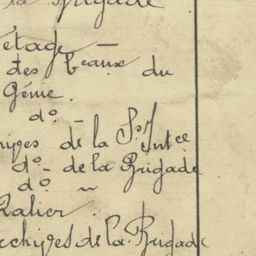 la Brigade
étage —
des b.eaux du
Génie.
d°. —
hives de la S.s Int.ce
d° - de la Brigade
d°. "
Ratier
rchives de la Brigade